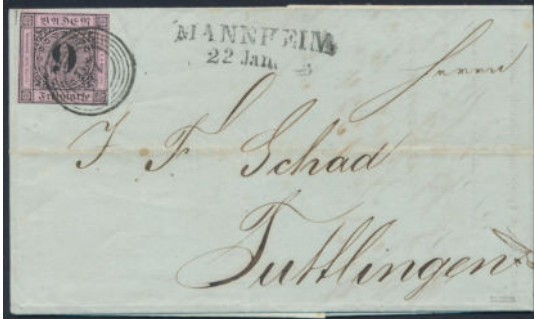 BADEN
9
Freimarke
MANNHEIM
22 Jan.
Herrn
J F Schad
Tuttlingen